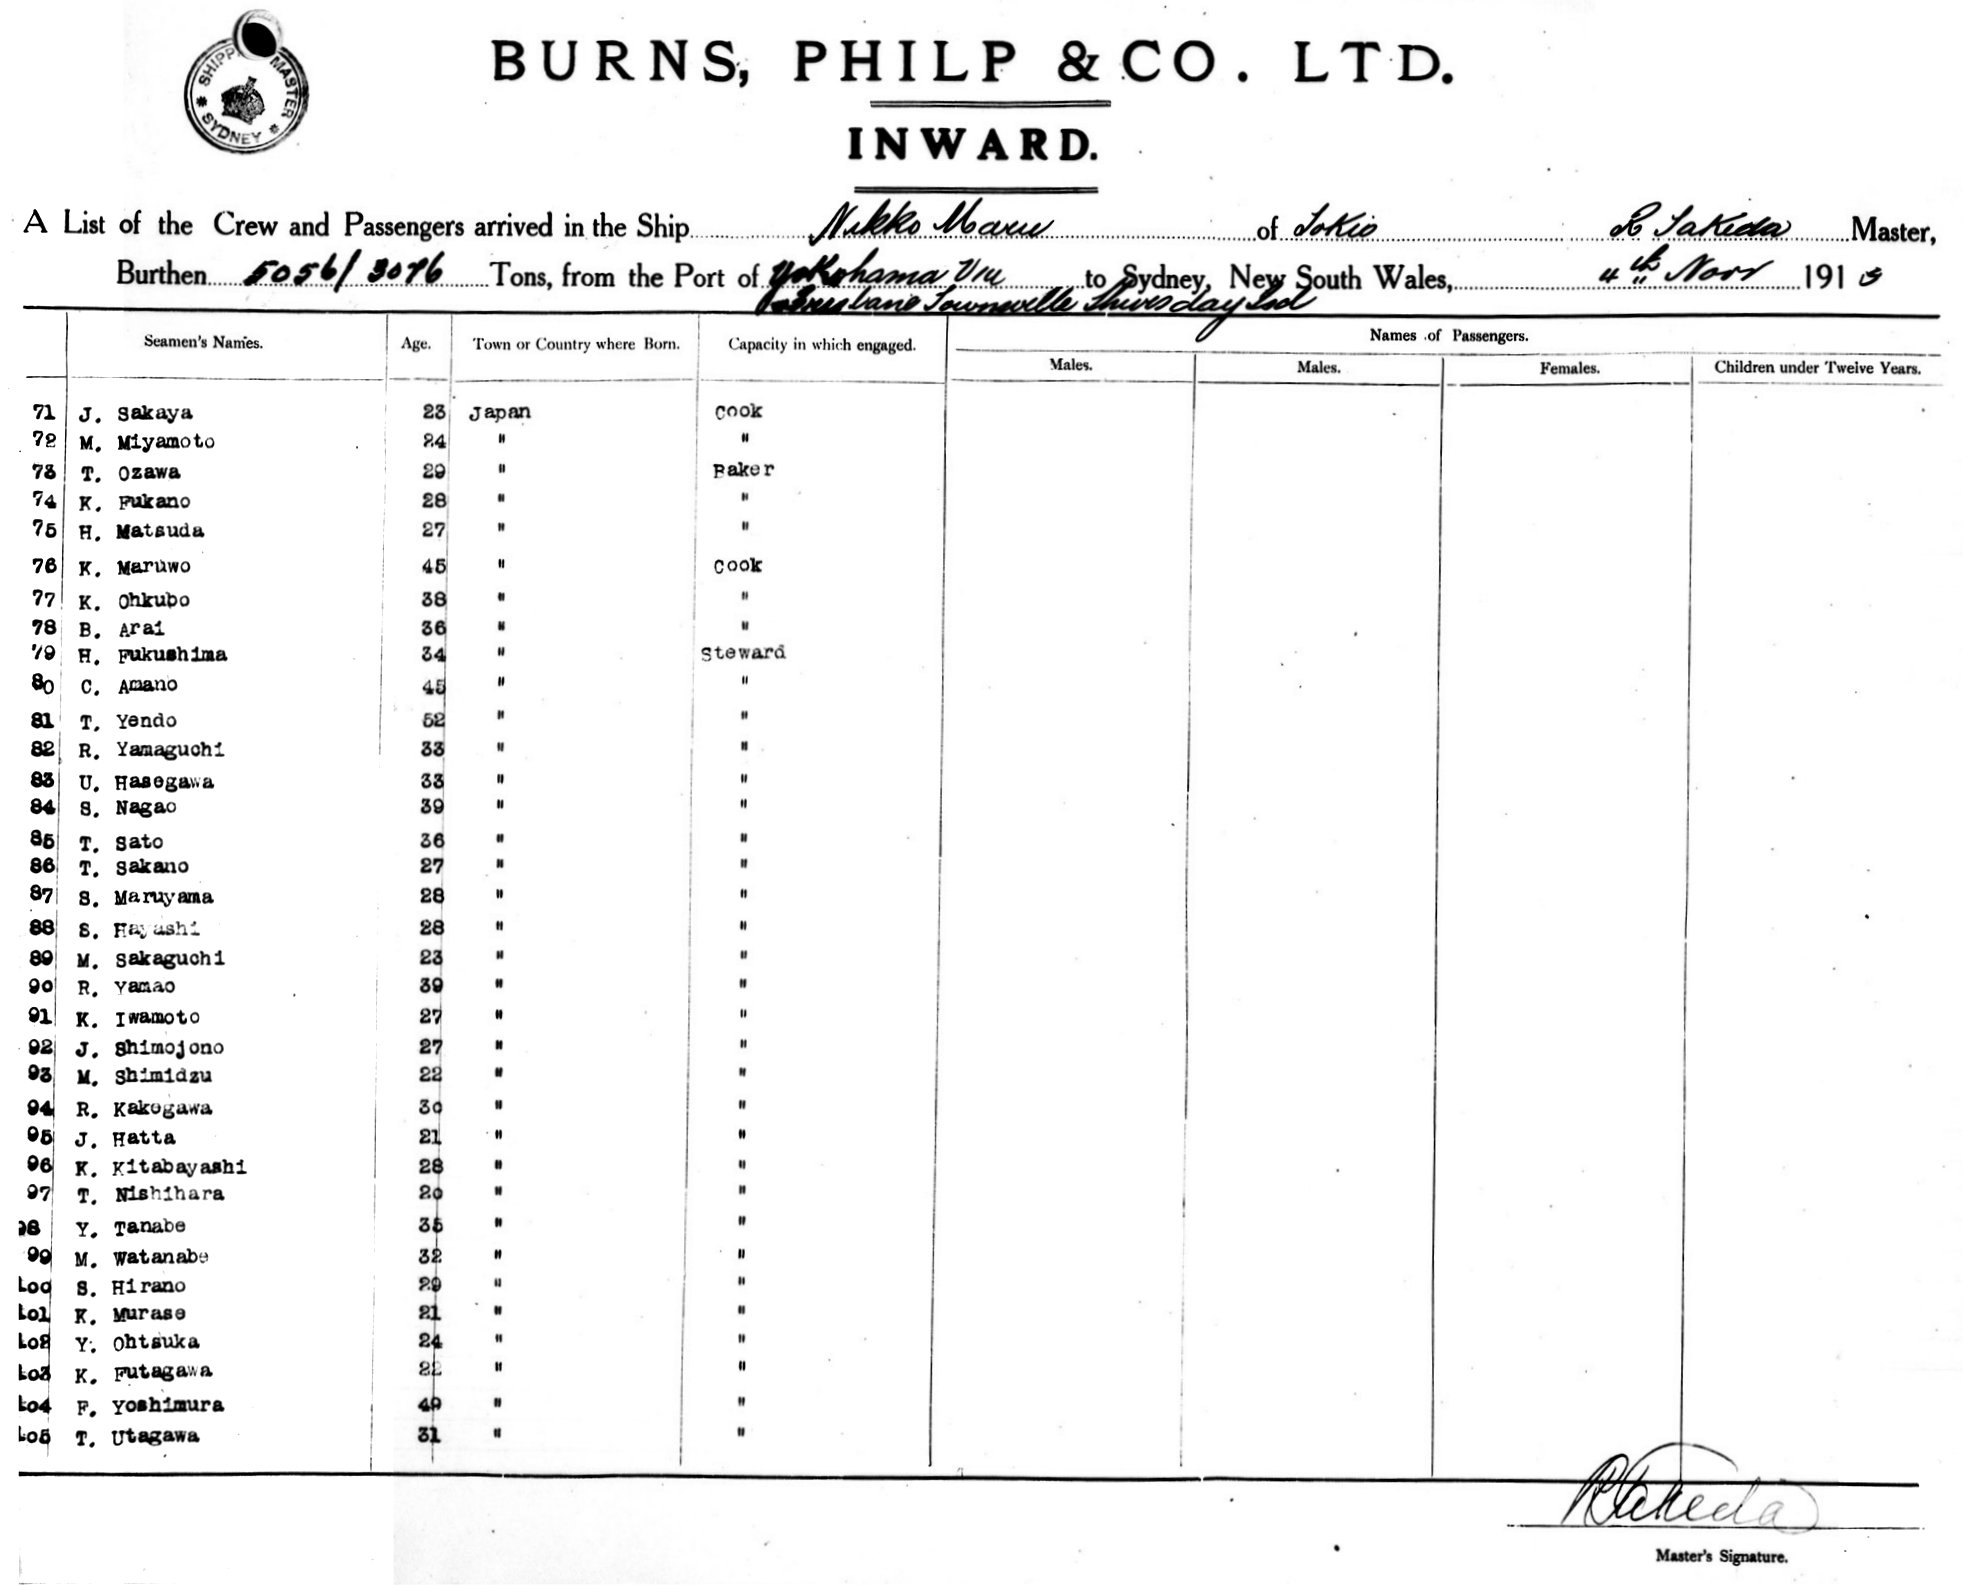 SHIPP MASTER
* SYDNEY *
BURNS, PHILP & CO. LTD.
INWARD.
A List of the Crew and Passengers arrived in the Ship Nikko Maru of Tokio R Takeda Master,
Burthen 5056/3076 Tons, from the Port of Yokohama Via to Sydney, New South Wales, 4th Novr 1913
Brisbane Townsville Thursday Isd
Seamen's Names. Age. Town or Country where Born. Capacity in which engaged. Names of Passengers.
Males. Males. Females. Children under Twelve Years.
71 J. Sakaya 23 Japan Cook
72 M. Miyamoto 24 " "
73 T. Ozawa 29 " Baker
74 K. Fukano 28 " "
75 H. Matsuda 27 " "
76 K. Maruwo 45 " Cook
77 K. Ohkubo 38 " "
78 B. Arai 36 " "
79 H. Fukushima 34 " Steward
80 C. Amano 45 " "
81 T. Yendo 52 " "
82 R. Yamaguchi 33 " "
83 U. Hasegawa 33 " "
84 S. Nagao 39 " "
85 T. Sato 36 " "
86 T. Sakano 27 " "
87 S. Maruyama 28 " "
88 S. Hayashi 28 " "
89 M. Sakaguchi 23 " "
90 R. Yamao 39 " "
91 K. Iwamoto 27 " "
92 J. Shimojono 27 " "
93 M. Shimidzu 22 " "
94 R. Kakogawa 30 " "
95 J. Hatta 21 " "
96 K. Kitabayashi 28 " "
97 T. Nishihara 20 " "
98 Y. Tanabe 35 " "
99 M. Watanabe 32 " "
100 S. Hirano 29 " "
101 K. Murase 21 " "
102 Y. Ohtsuka 24 " "
103 K. Futagawa 22 " "
104 F. Yoshimura 49 " "
105 T. Utagawa 31 " "
R Takeda
Master's Signature.